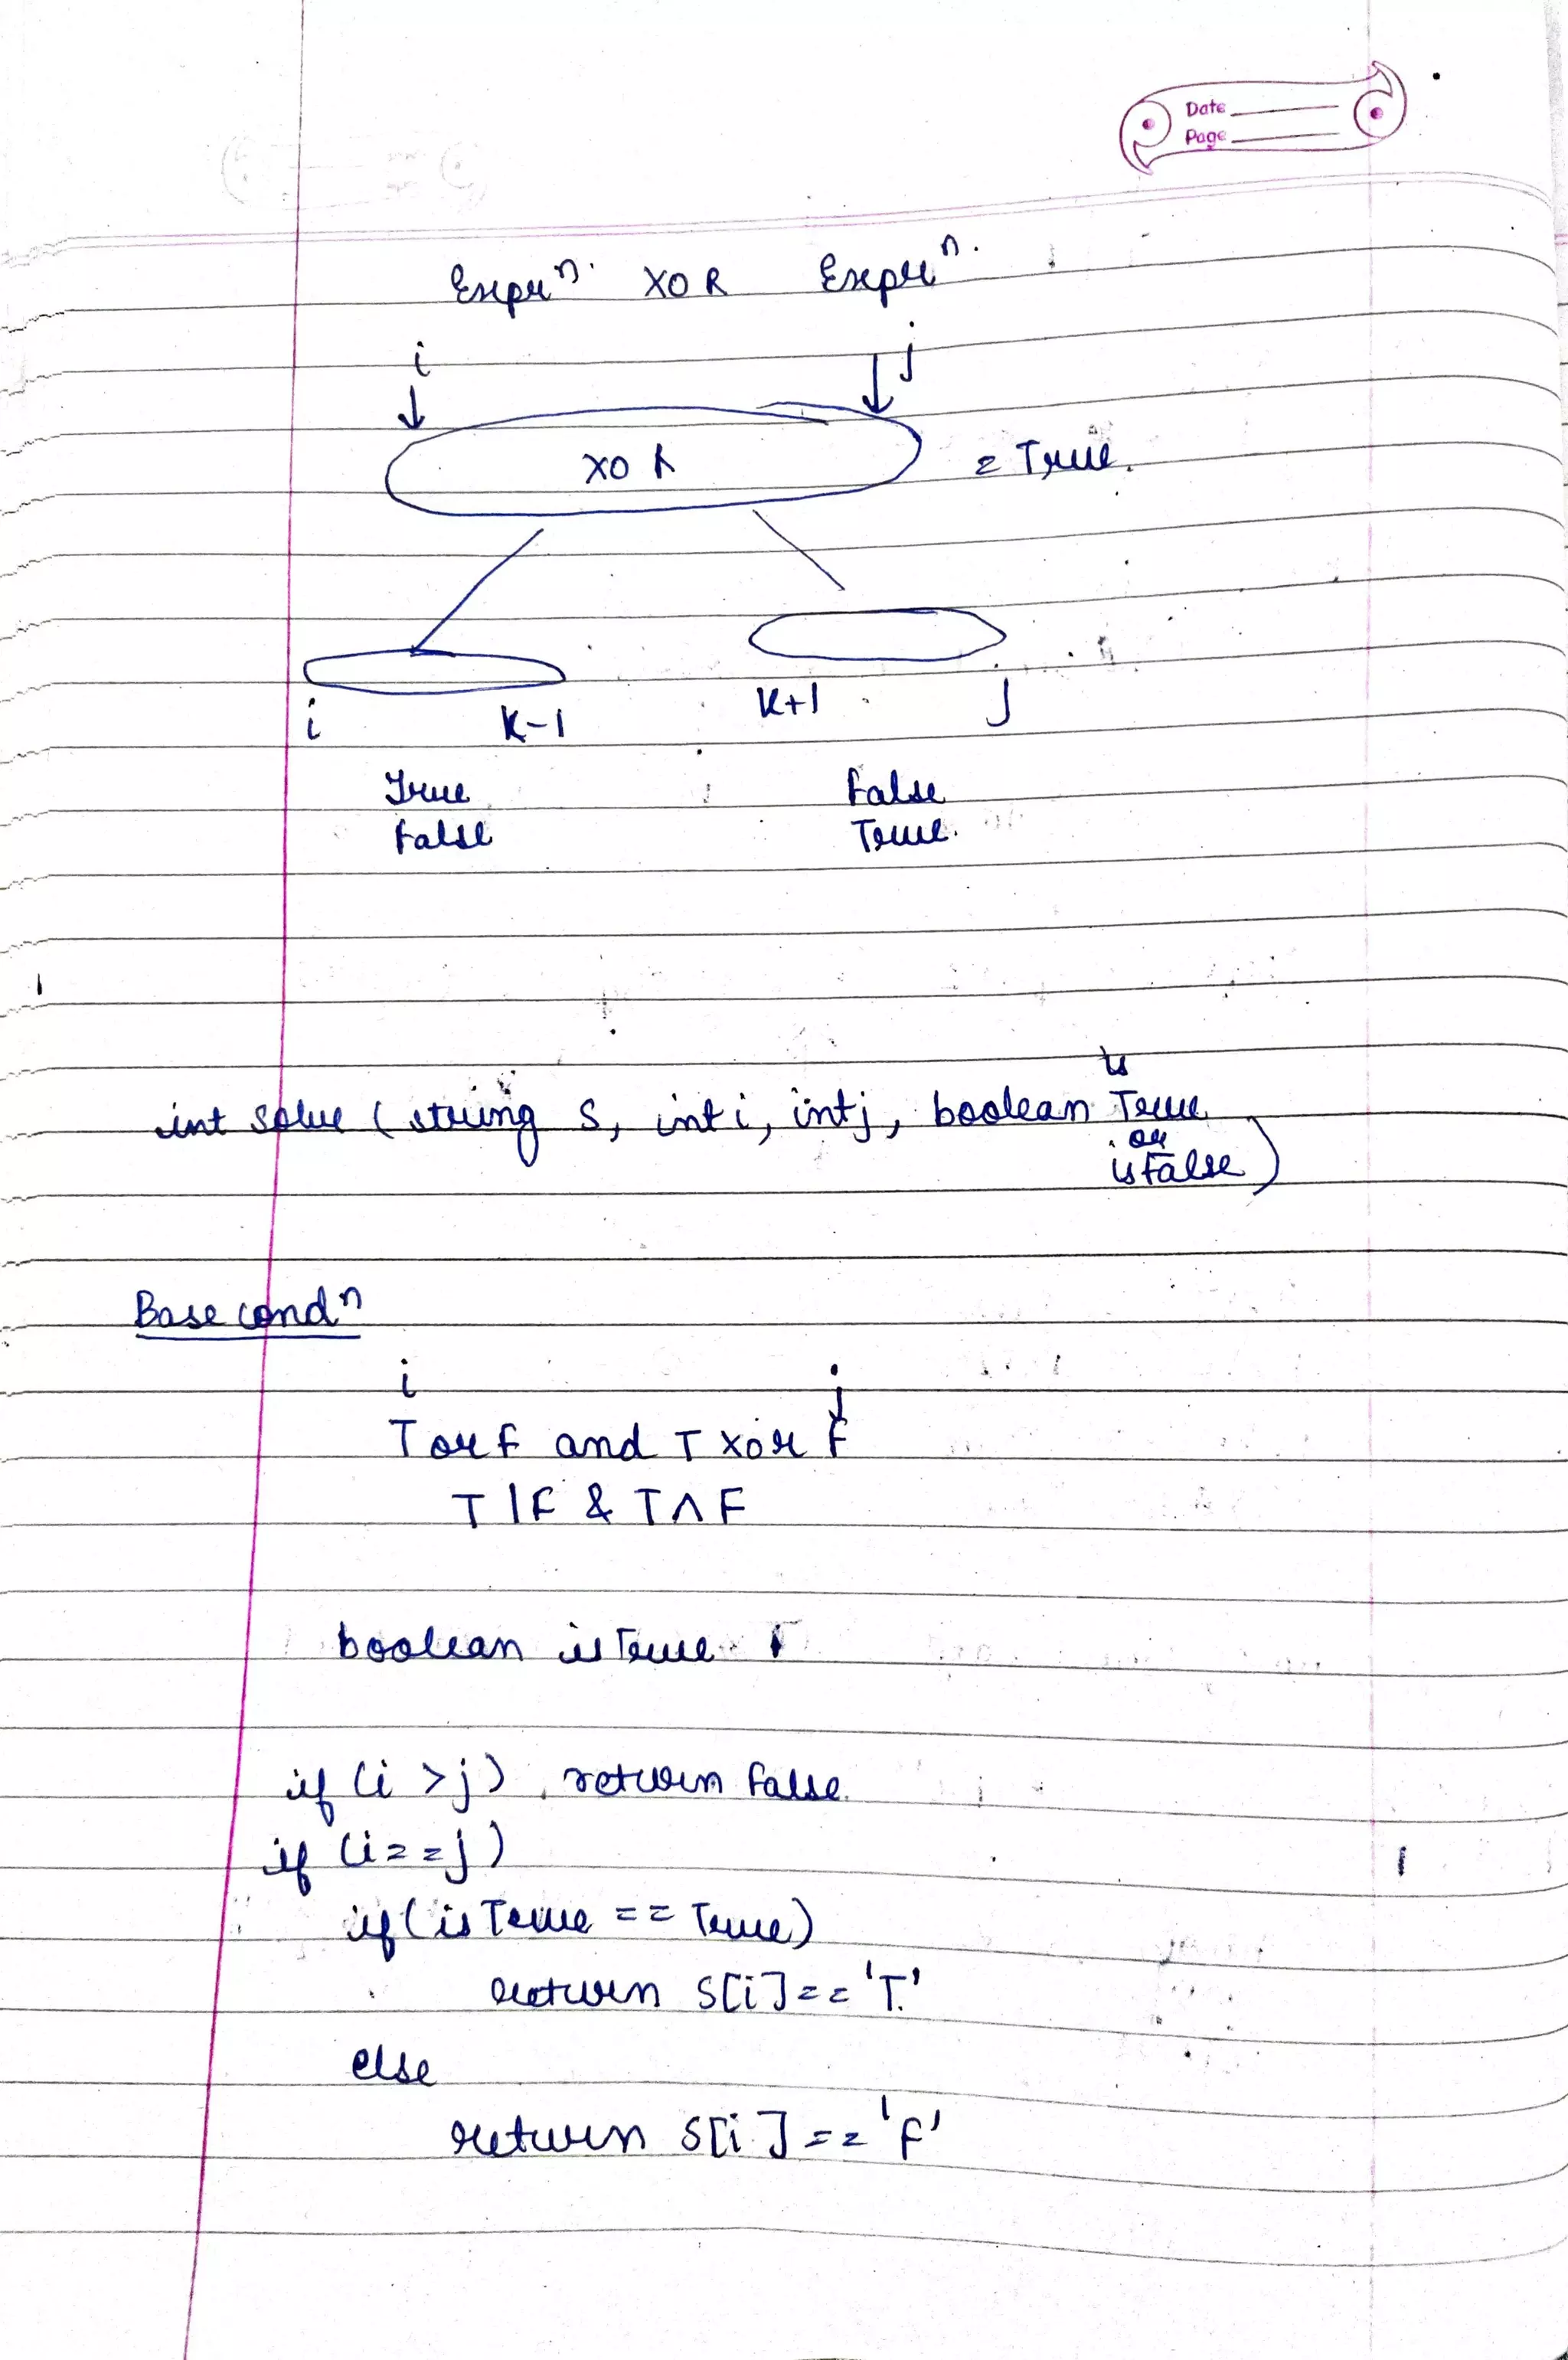 Date
Page
Expr^n. XOR Expr^n.
i j
XOR = True.
i K-1 K+1 j
True False
False True.
is
int solve (string S, int i, int j, boolean True
or
isFalse)
Base cond^n
i j
T or F and T xor F
T | F & T ^ F
boolean isTrue
if (i > j) return False.
if (i == j)
if (isTrue == True)
return S[i] == 'T'
else
return S[i] == 'F'